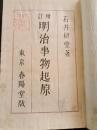 石井研堂著
増訂 明治事物起原
東京 春陽堂版